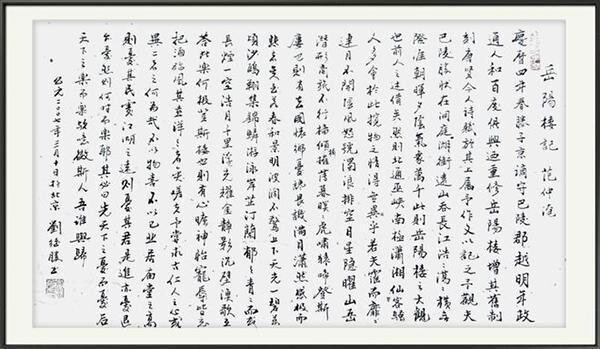 岳陽樓記 范仲淹
慶曆四年春滕子京謫守巴陵郡越明年政
通人和百廢俱興迺重修岳陽樓增其舊制
刻唐賢今人詩賦於其上屬予作文以記之予觀夫
巴陵勝狀在洞庭湖銜遠山吞長江浩々湯々橫無
際涯朝暉夕陰氣象萬千此則岳陽樓之大觀
也前人之述備矣然則北通巫峽南極瀟湘遷客騷
人多會於此攬物之情得無異乎若夫霪雨霏々
連月不開陰風怒號濁浪排空日星隱曜山岳
潛形商旅不行檣傾楫摧薄暮暝々虎嘯猿啼登斯
樓也則有去國懷鄉憂讒畏譏滿目蕭然感極而
悲者矣至若春和景明波瀾不驚上下天光一碧萬
頃沙鷗翔集錦鱗游泳岸芷汀蘭郁々青々而或
長煙一空浩月千里浮光耀金靜影沉璧漁歌互
答此樂何極登斯樓也則有心曠神怡寵辱皆忘
把酒臨風其喜洋々者矣嗟夫予嘗求古仁人之心或
異二者之為何哉不以物喜不以己悲居廟堂之高
則憂其民處江湖之遠則憂其君是進亦憂退
亦憂然則何時而樂耶其必曰先天下之憂而憂後
天下之樂而樂歟噫微斯人吾誰與歸
公元二〇〇七年三月十日於北京 劉德勝書